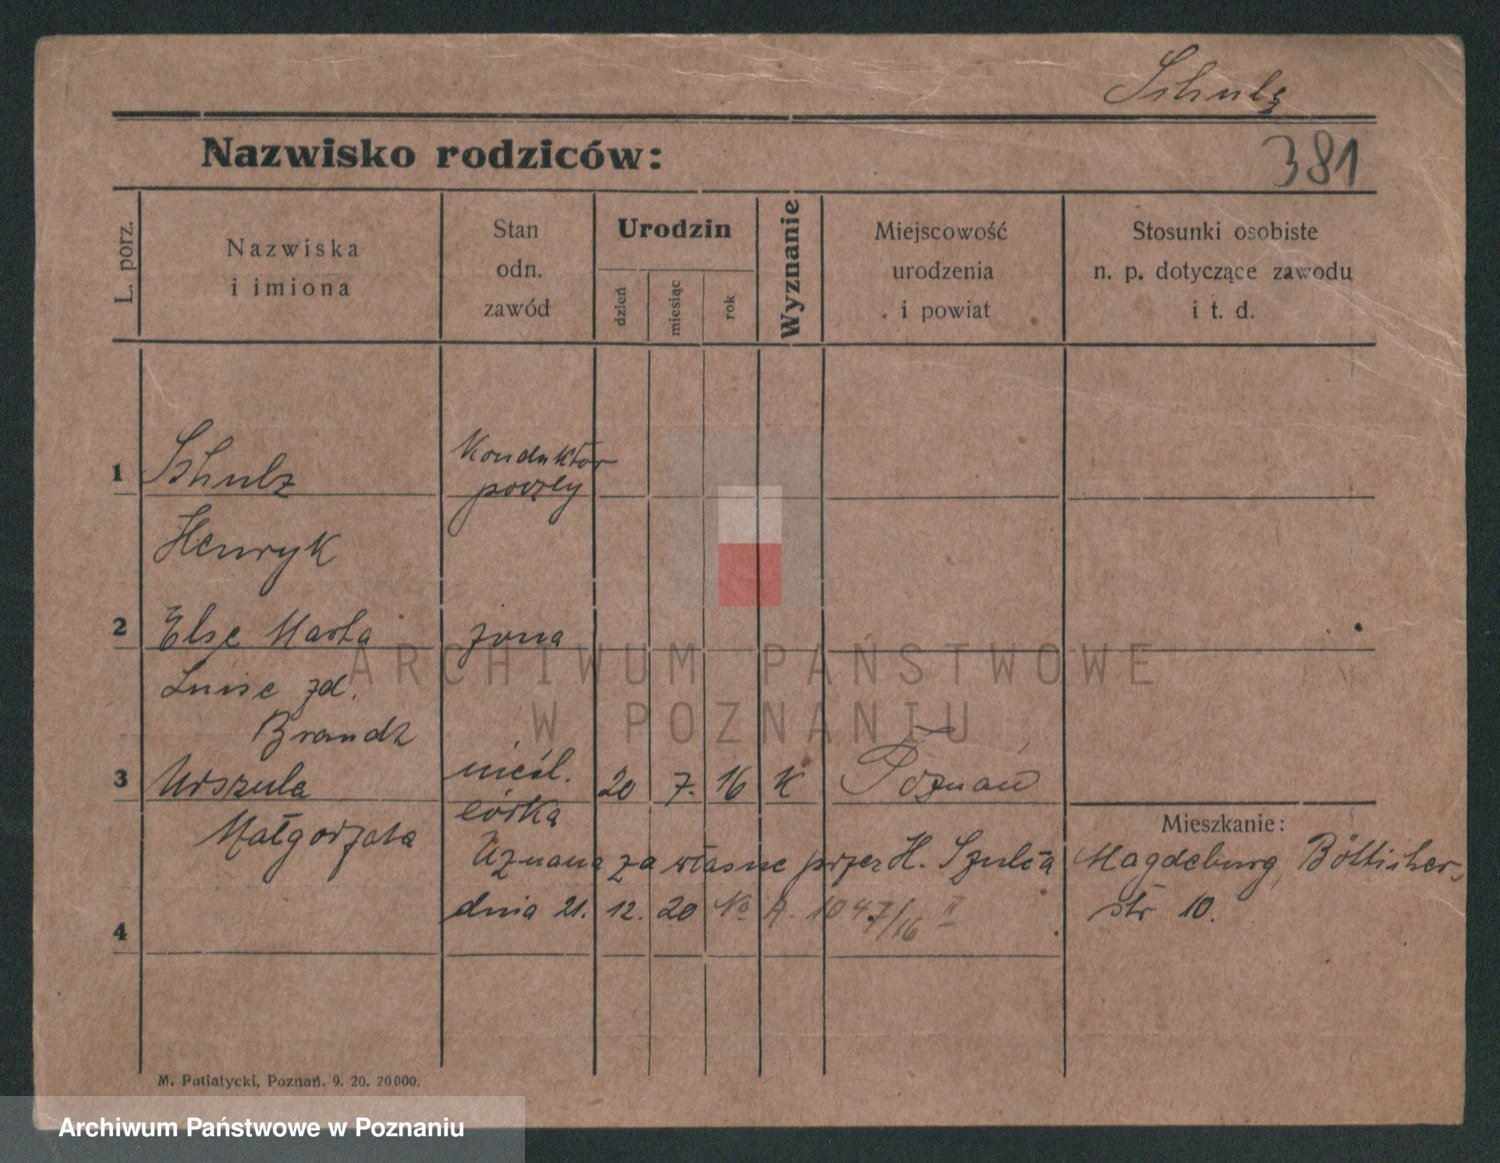 Schulz
Nazwisko rodziców:
381
L. porz.
Nazwiska
i imiona
Stan
odn.
zawód
Urodzin
dzień
miesiąc
rok
Wyznanie
Miejscowość
urodzenia
i powiat
Stosunki osobiste
n. p. dotyczące zawodu
i t. d.
1 Schulz Konduktor
poczty
Henryk
2 Else Marta żona
Luise zd.
Brandz
3 Urszula nieśl. 20 7. 16 K Poznań
córka
Małgorzata
Mieszkanie:
Uznana za własne przez H. Szulca
dnia 21. 12. 20 No A. 1047/16 II
Magdeburg, Bötticher-
str 10.
4
M. Putiatycki, Poznań. 9. 20. 20000.
ARCHIWUM PAŃSTWOWE
W POZNANIU
Archiwum Państwowe w Poznaniu